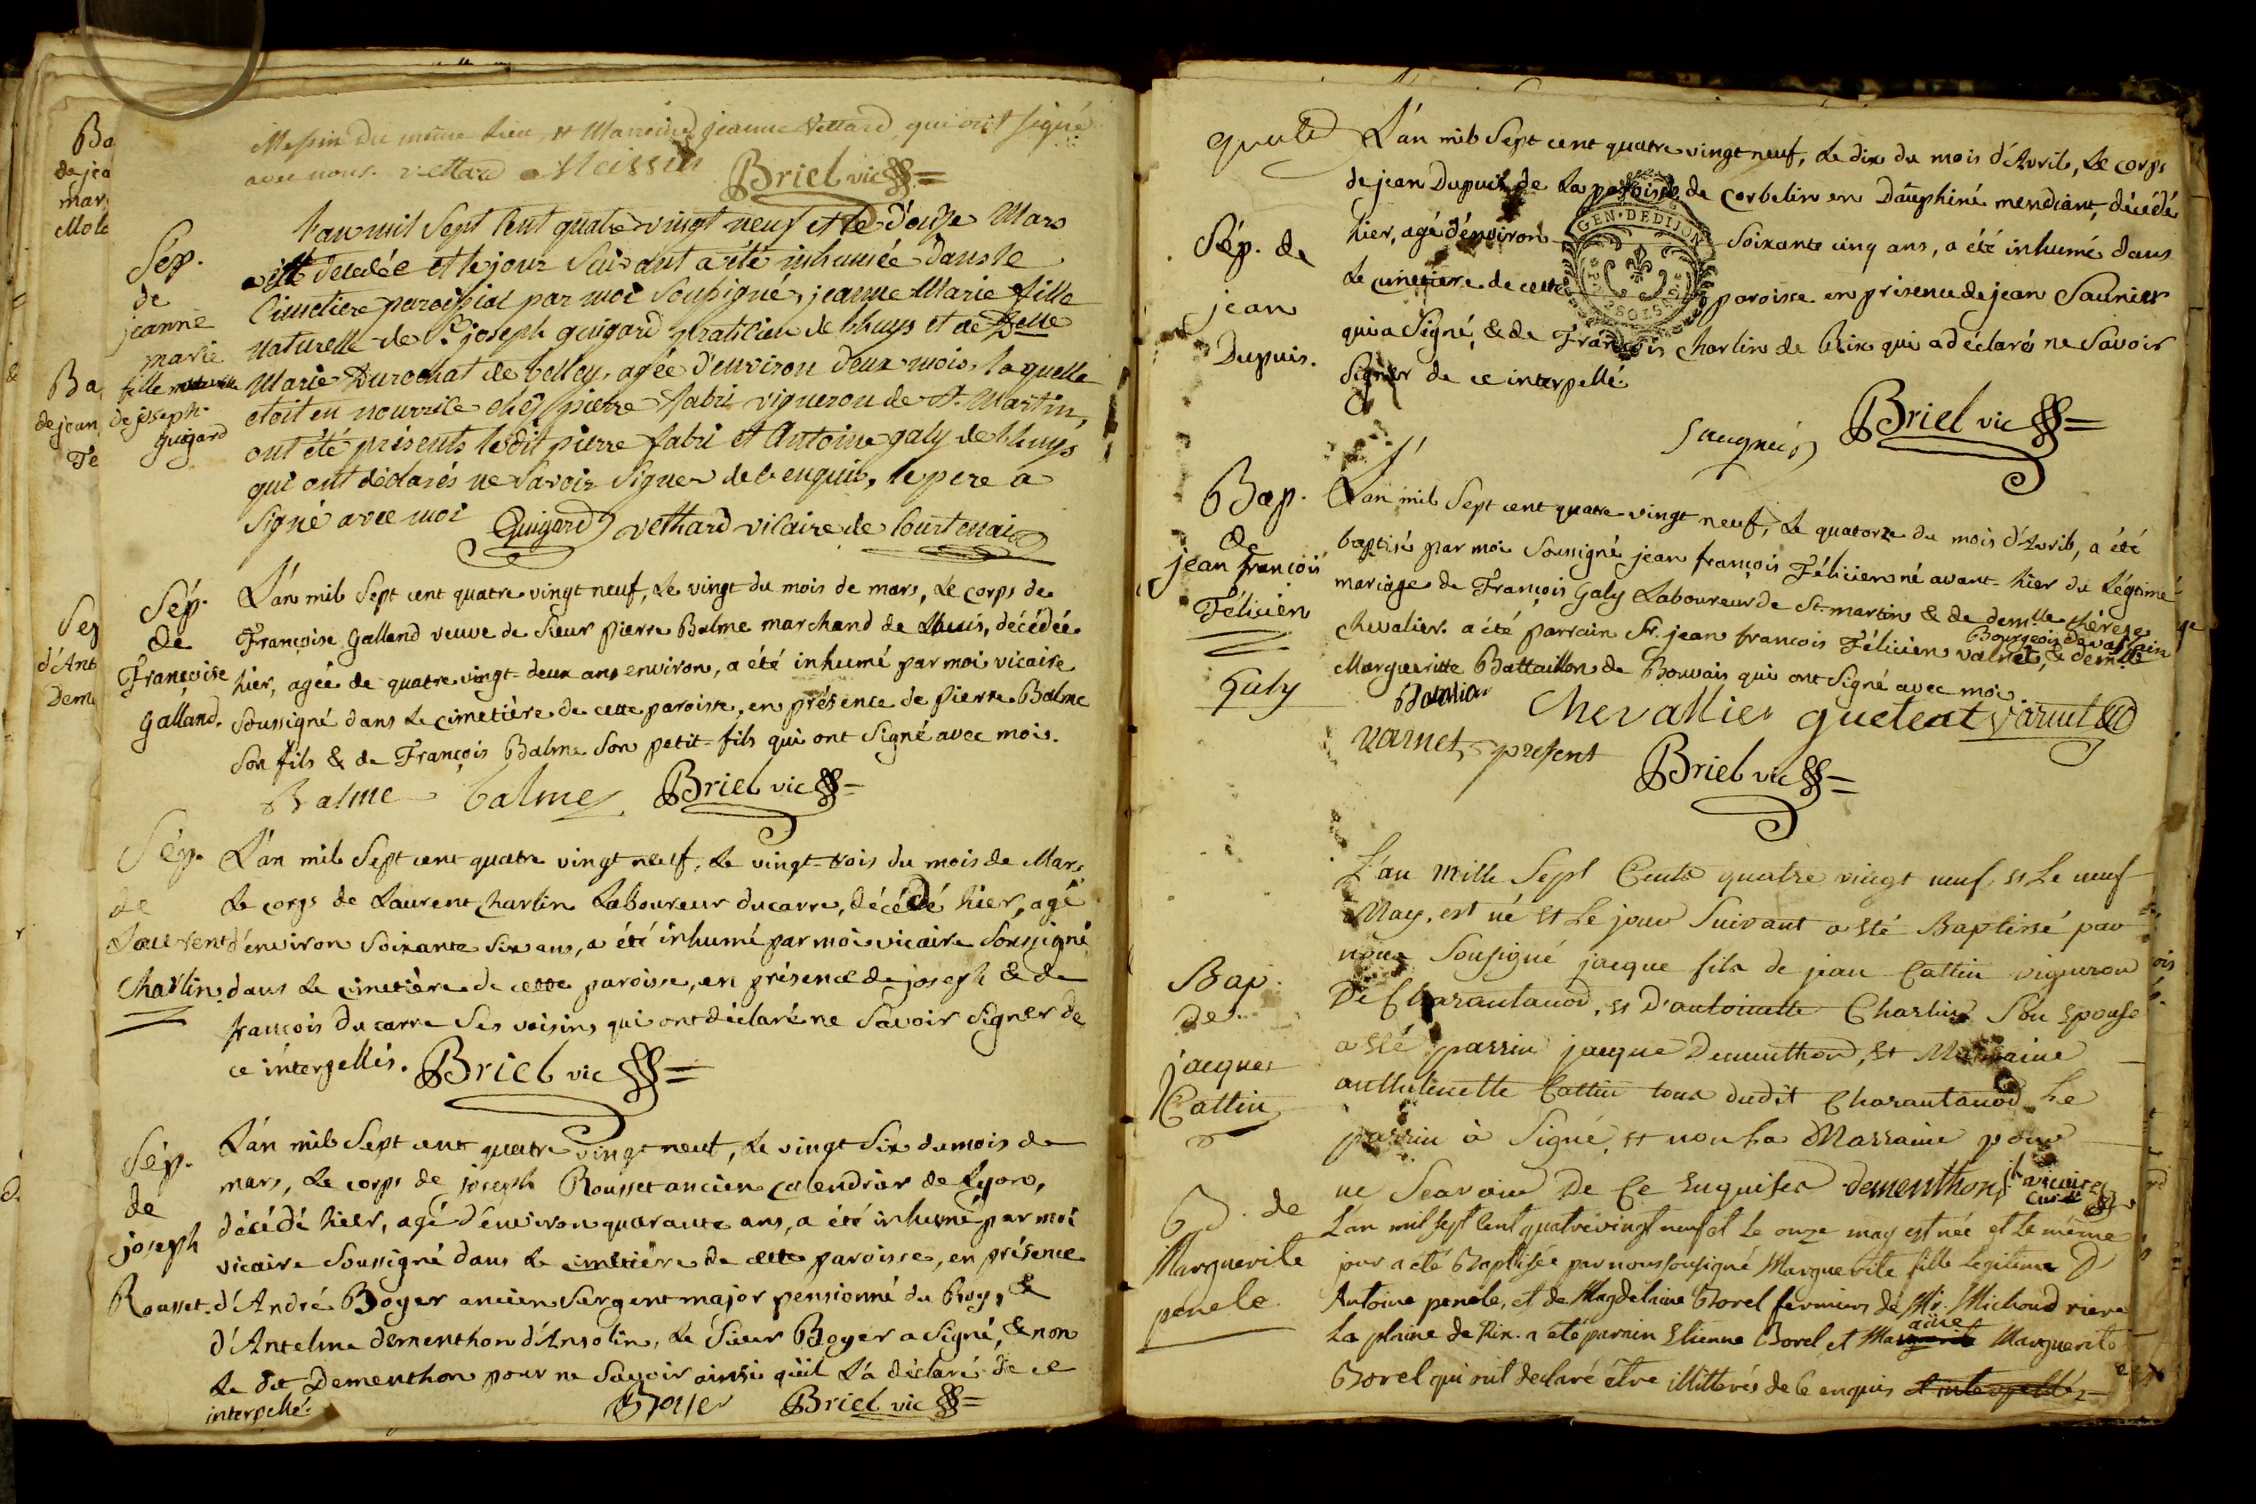 Ba
de jea
mar
Mola
Ba
de jean
Fe
Sep
d'Ant
Deme
Messin du même lieu et Marreine jeanne Vettard, qui ont signé
avec nous. vettard Meissin Briel vic
Sép.
de
jeanne
marie
fille naturelle
de joseph
guigard
L'an mil sept cent quatre vingt neuf et le douze Mars
est décédée et le jour suivant a été inhumée dans le
Cimetiere paroissial par moi soussigné, jeanne Marie fille
naturelle de Sr joseph guigard praticien de Lhuys et de Delle
Marie Durochat de belley, agée d'environ deux mois, laquelle
etoit en nourrice chés pierre fabri vigneron de St. Martin,
ont été présents ledit pierre fabri et Antoine galy de Lhuys
qui ont déclarés ne savoir signer de ce enquis, le pere a
signé avec moi Guigard vethard vicaire de Courtenai
Sép.
de
Françoise
Galland.
L'an mil sept cent quatre vingt neuf, le vingt du mois de mars, le corps de
Françoise Galland veuve de sieur Pierre Balme marchand de Lhuis, décédée
hier, agée de quatre vingt-deux ans environ, a été inhumé par moi vicaire
soussigné dans le cimetière de cette paroisse, en présence de Pierre Balme
son fils & de François Balme son petit-fils qui ont signé avec moi.
Balme balme Briel vic
Sép.
de
Laurent
Charlin
L'an mil sept cent quatre vingt neuf, le vingt-trois du mois de Mars,
le corps de Laurent Charlin Laboureur ducarre, décédé hier, agé
d'environ soixante six ans, a été inhumé par moi vicaire soussigné
dans le cimetière de cette paroisse, en présence de joseph & de
francois ducarre ses voisins qui ont déclaré ne savoir signer de
ce interpellés. Briel vic
Sép.
de
joseph
Rousset.
L'an mil sept cent quatre vingt neuf, le vingt six du mois de
mars, le corps de joseph Rousset ancien calendrier de Lyon,
décédé hier, agé d'environ quarante ans, a été inhumé par moi
vicaire soussigné dans le cimetière de cette paroisse, en présence
d'André Boyer ancien sergent major pensionné du Roy, &
d'Antelme dementhon d'Ansolin, le sieur Boyer a signé, & non
le dit Dementhon pour ne savoir ainsi qu'il l'a déclaré de ce
interpellé. Boyer Briel vic
GEN·DEDIJON
Sép. de
jean
Dupuis.
L'an mil sept cent quatre vingt neuf, le dix du mois d'Avril, le corps
de jean Dupuis de la paroisse de Corbelin en Dauphiné mendiant, décédé
hier, agé d'environ soixante cinq ans, a été inhumé dans
le cimetiere de cette paroisse en présence de jean Saunier
qui a signé, & de François Charlin de Rix qui a déclaré ne savoir
signer de ce interpellé
Briel vic
Bap.
de
jean françois
Félicien
Galy
L'an mil sept cent quatre vingt neuf, le quatorze du mois d'Avril, a été
baptisé par moi soussigné jean françois Félicien né avant-hier du légitime
mariage de François Galy Laboureur de St-martin & de demlle thérese
Chevalier. a été parrain Sr. jean francois Félicien varnet, Bourgeois & demlle
Marguerite Battaillon de Bouvais qui ont signé avec moi.
Chevallier varnet
varnet, present Briel vic
Bap.
de
jacques
Cattin
L'an mille sept Cents quatre vingt neuf, et le neuf
May, est né et le jour suivant a été Baptissé par
nous sousigné jacque fils de jean Cattin vigneron
De Charantanod, et D'antoinette Charlin son epouse
a été parrin jacque Dementhon, et Marraine
Cattin tous dudit Charantanod, le
parrin à signé, et non la Marraine pour
ne sçavoir De Ce enquises dementhon
curé
B. de
Marguerite
penele
L'an mil sept Cent quatre vingt neuf et le onze may est née et le même
jour a été Baptisée par nous sousigné Marguerite fille legitime D
Antoine penele, et de Magdelaine Borel fermiers de Mr. Michoud riere
la plaine de Rix. a été parrain Etienne Borel, et Maraine Marguerite
Borel qui ont declaré être illittérés de ce enquis et interpellés